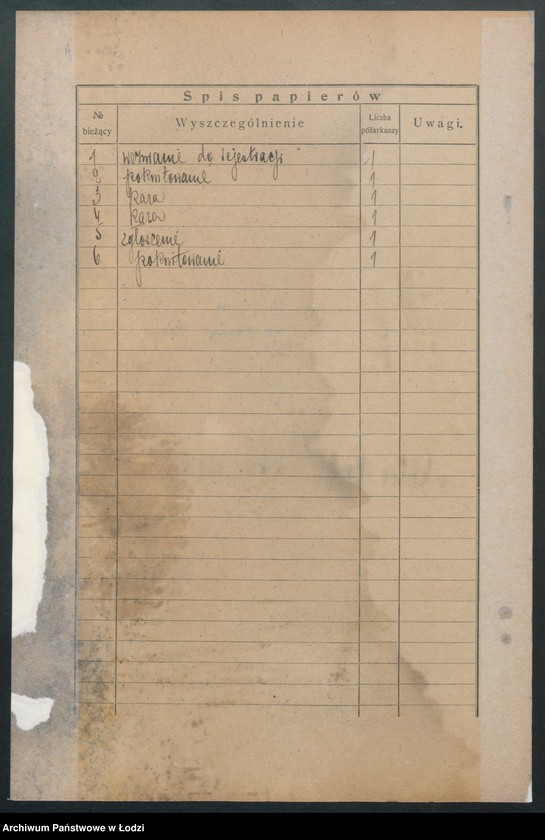 Spis papierów
№ bieżący Wyszczególnienie Liczba półarkuszy Uwagi.
1 wezwanie do rejestracji 1
2 pokwitowanie 1
3 kara 1
4 kara 1
5 zgłoszenie 1
6 pokwitowanie 1
Archiwum Państwowe w Łodzi